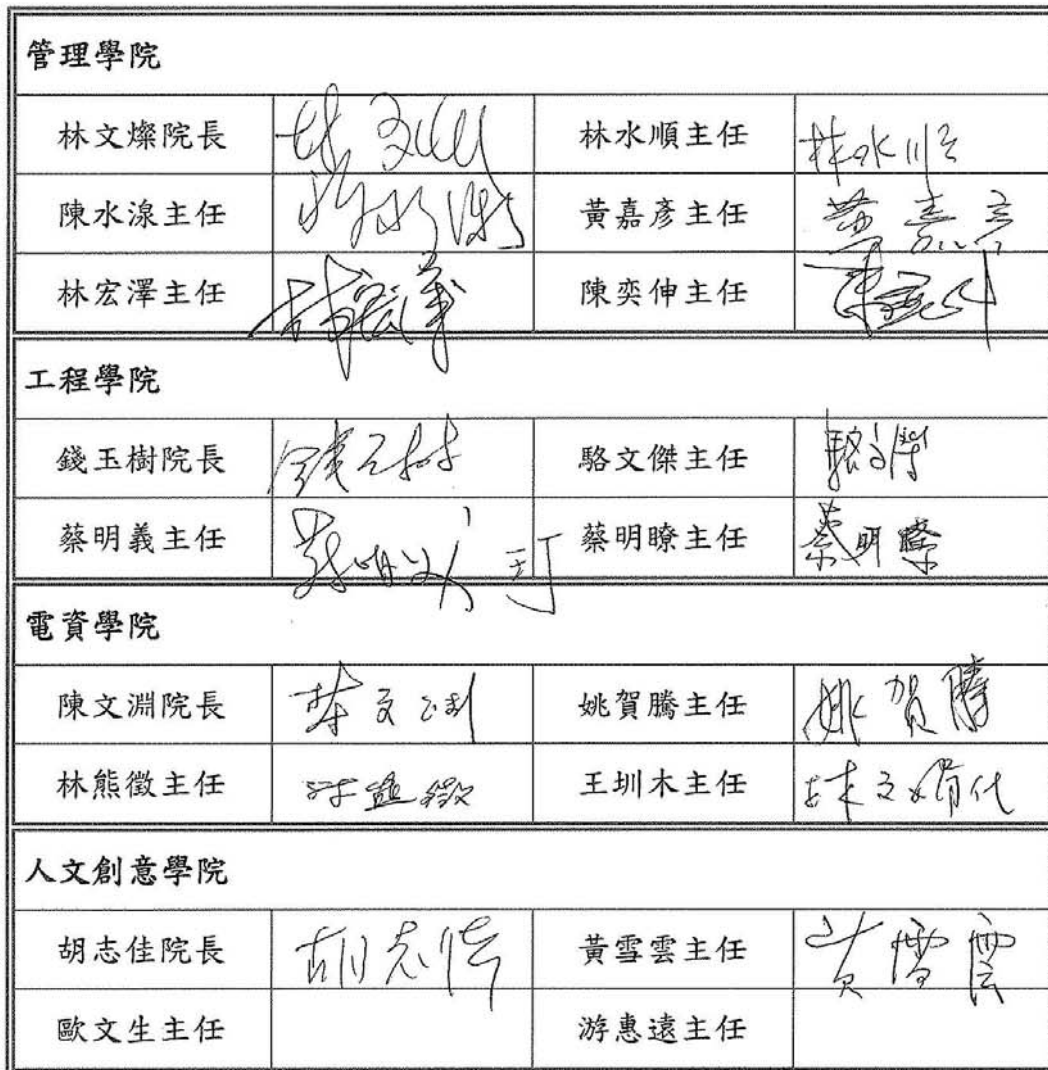 管理學院
林文燦院長 林文燦 林水順主任 林水順
陳水湶主任 黃嘉彥主任 黃嘉彥
林宏澤主任 林宏澤 陳奕伸主任
工程學院
錢玉樹院長 錢玉樹 駱文傑主任 駱文傑
蔡明義主任 蔡明瞭主任 蔡明瞭
電資學院
陳文淵院長 陳文淵 姚賀騰主任 姚賀騰
林熊徵主任 林熊徵 王圳木主任
人文創意學院
胡志佳院長 胡志佳 黃雪雲主任 黃雪雲
歐文生主任 游惠遠主任